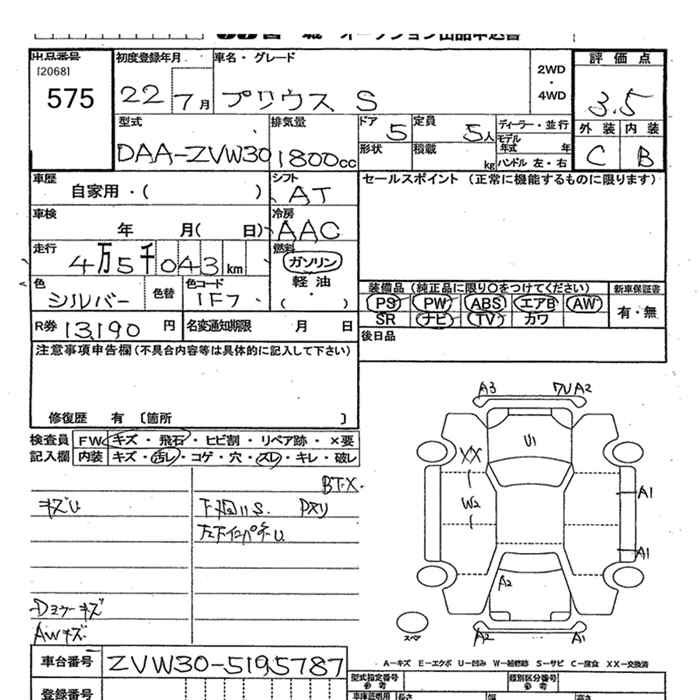 オークション出品申込書
出品番号 初度登録年月 車名・グレード 2WD・4WD 評価点
[2068]
575 22 7月 プリウス S 3.5
型式 排気量 ドア 5 定員 5人 ディーラー・並行 外装 内装
モデル年式 年
DAA-ZVW30 1800cc 形状 積載 kg ハンドル 左・右 C B
車歴 シフト セールスポイント (正常に機能するものに限ります)
自家用・( ) AT
車検 冷房
年 月( 日) AAC
走行 燃料
4万5千043km ガソリン
色 色替 色コード 軽油 装備品 (純正品に限り○をつけてください) 新車保証書
シルバー 1F7 ・( ) PS PW ABS エアB AW 有・無
R券 13,190円 名変通知期限 月 日 SR ナビ TV カワ
注意事項申告欄(不具合内容等は具体的に記入して下さい) 後日品
修復歴 有 〔箇所 〕
検査員 FW キズ・飛石・ヒビ割・リペア跡・×要
記入欄 内装 キズ・汚レ・コゲ・穴・スレ・キレ・破レ
A3 ワリA2
U1
XX
W2
A1
A1
A2
A2 A1
スペア
BTX.
キズU
AWキズ
車台番号 ZVW30-5195787
A-キズ E-エクボ U-凹み W-補修跡 S-サビ C-腐食 XX-交換済
登録番号 型式指定番号 参考 類別区分番号 参考
車庫証明用 参考 長さ 幅 高さ